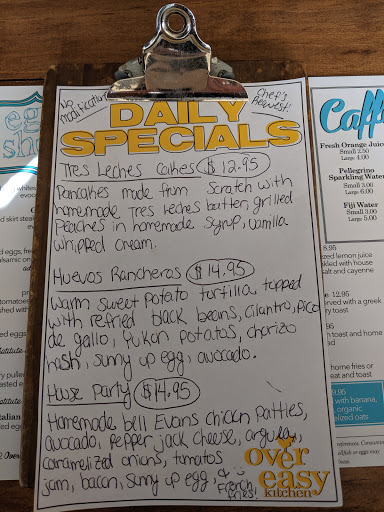 No modifications
Chef's Request!
DAILY SPECIALS
Tres Leches Cakes $12.95
Pancakes made from Scratch with
homemade Tres Leches butter, grilled
Peaches in homemade Syrup, vanilla
whipped cream.
Huevos Rancheros $14.95
Warm Sweet Potato tortilla topped
with refried black beans, Cilantro, Pico
de gallo, Yukon Potatos, chorizo
hash, sunny up egg, avocado.
House Party $14.95
Homemade bell Evans chickn Patties,
avocado, pepper jack cheese, argula,
caramelized onions, tomatos
jam, bacon, sunny up egg &
French fries!
over
easy
kitchen
Caffe
Fresh Orange Juice
Small 2.50
Large 4.00
Pellegrino
Sparkling Water
Small 3.00
Large 6.00
Fiji Water
Small 3.00
Large 5.00
lemon juice
with house
salt and cayenne
12.95
with a greek
ry toast
toast and home
home fries or
eat and toast
9.95
with banana,
organic
oats
egg
sh
whites
skirt steak
ed eggs, fre
alsamic on
tomatoes
shed with
Italian